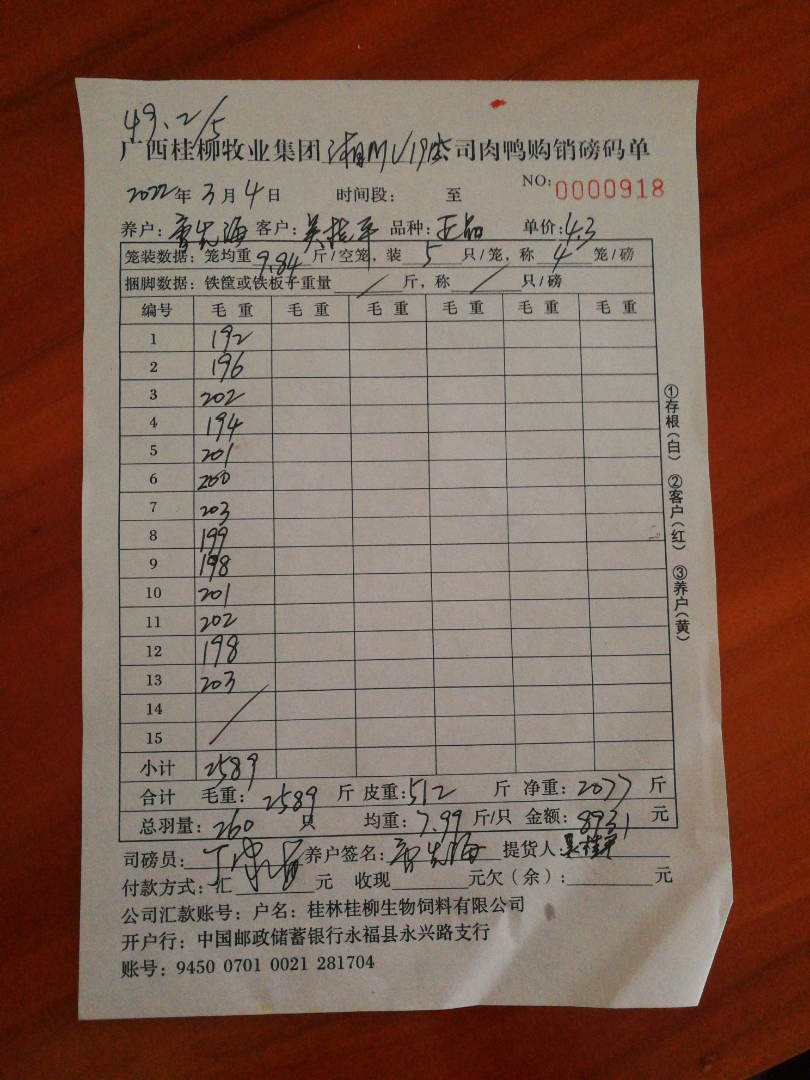 49.2/5
广西桂柳牧业集团 司肉鸭购销磅码单
2022年3月4日 时间段： 至 NO:0000918
养户： 客户：吴桂平 品种：正品 单价：4.3
笼装数据：笼均重9.84斤/空笼，装5只/笼，称4笼/磅
捆脚数据：铁筐或铁板子重量/斤，称/只/磅
编号 毛重 毛重 毛重 毛重 毛重 毛重
1 192
2 196
3 202
4 194
5 201
6 200
7 203
8 199
9 198
10 201
11 202
12 198
13 203
14
15
小计 2589
合计 毛重：2589斤 皮重：512斤 净重：2077斤
总羽量：260只 均重：7.99斤/只 金额：8931元
司磅员： 养户签名： 提货人：吴桂平
付款方式：汇 元 收现 元欠（余）： 元
公司汇款账号：户名：桂林桂柳生物饲料有限公司
开户行：中国邮政储蓄银行永福县永兴路支行
账号：9450 0701 0021 281704
①存根（白） ②客户（红） ③养户（黄）